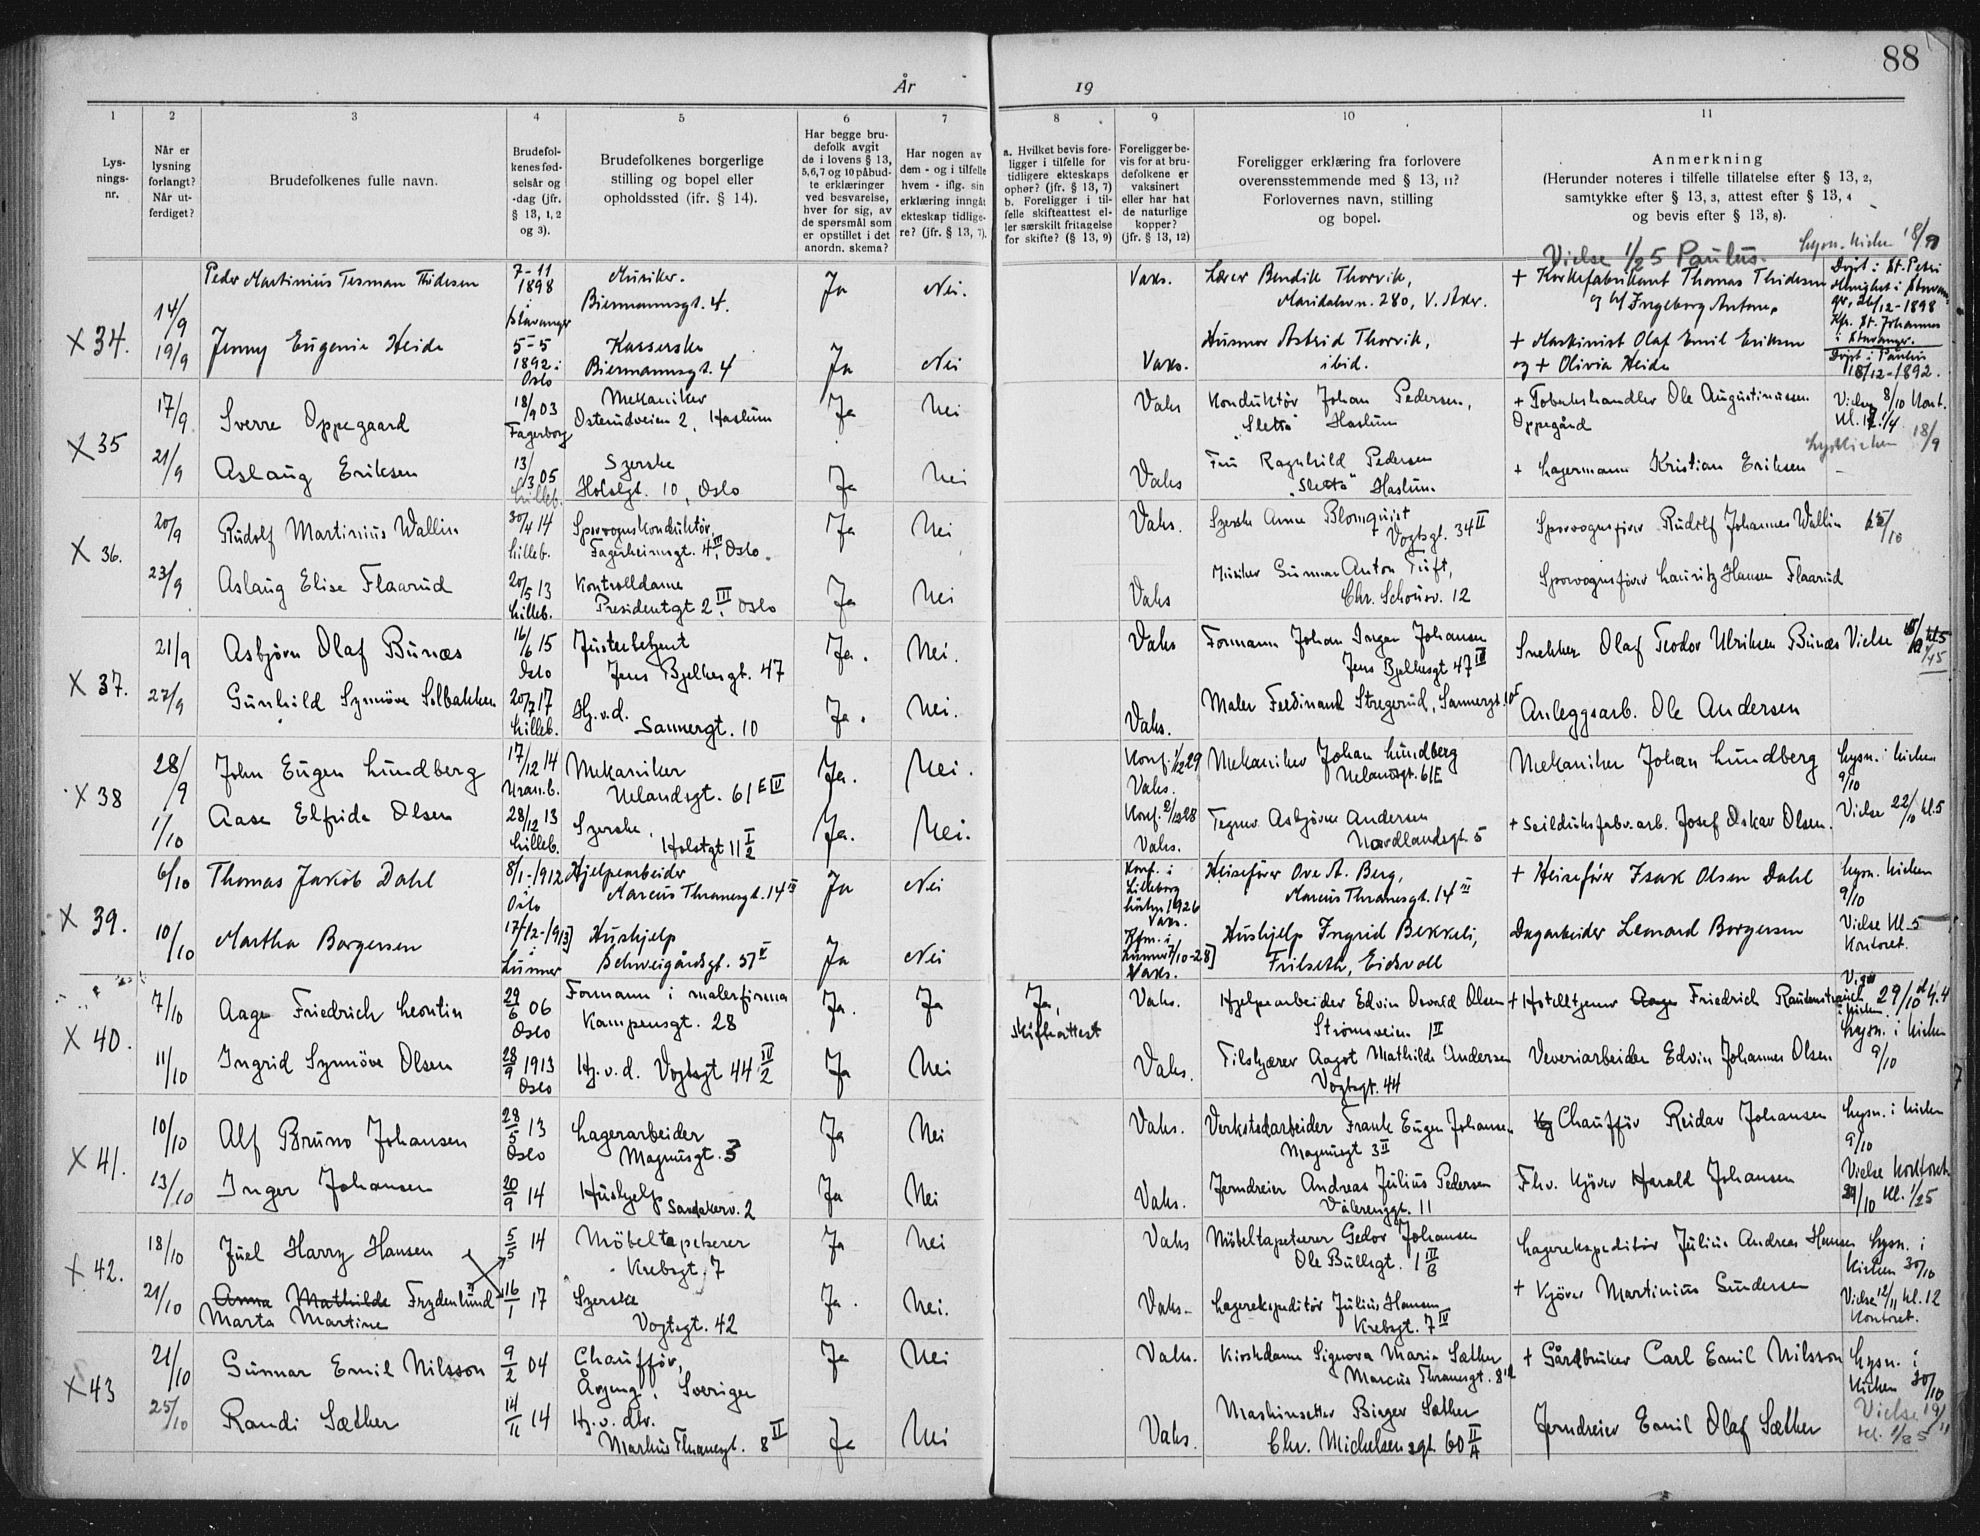 88
År
19
1
2
3
4
5
6
7
8
9
10
11
Lys-
nings-
nr.
Når er
lysning
forlangt?
Når ut-
ferdiget?
Brudefolkenes fulle navn.
Brudefol-
kenes fød-
selsår og
-dag (jfr.
§ 13, 1, 2
og 3).
Brudefolkenes borgerlige
stilling og bopel eller
opholdssted (ifr. § 14).
Har begge bru-
defolk avgit
de i lovens § 13,
5,6,7 og 10 påbud-
te erklæringer
ved besvarelse,
hver for sig, av
de spørsmål som
er opstillet i det
anordn. skema?
Har nogen av
dem - og i tilfelle
hvem - iflg. sin
erklæring inngåt
ekteskap tidlige-
re? (jfr. § 13, 7).
a. Hvilket bevis fore-
ligger i tilfelle for
tidligere ekteskaps
opher? (jfr. § 13, 7)
b. Foreligger i til-
felle skifteattest el-
ler særskilt fritagelse
for skifte? (§ 13, 9)
Foreligger be-
vis for at bru-
defolkene er
vaksinert
eller har hat
de naturlige
kopper?
(jfr. § 13, 12)
Foreligger erklæring fra forlovere
overensstemmende med § 13, 11?
Forlovernes navn, stilling
og bopel.
Anmerkning
(Herunder noteres i tilfelle tillatelse efter § 13, 2,
samtykke efter § 13, 3, attest efter § 13, 4
og bevis efter § 13, 8).
Vielse 1/2 5 Paulus. Lysn. kirken 18/9
X 34.
14/9
19/9
Peder Martinius Tesman Thidesen
7-11
1898
i
Stavanger
Musiker.
Biermannsgt. 4.
Ja
Nei.
Vaks.
Lærer Bendik Thorvik,
Maridalsvn. 280, V. Aker.
+ Korkefabrikant Thomas Thidesen
og h/ Ingeborg Antone,
Døpt i St. Petri
Menighet i Stavan-
ger, 26/12-1898
Kfr. St. Johannes
i Stavanger.
Jenny Eugenie Heide
5-5
1892 i
Oslo
Kasserske
Biermannsgt. 4
Ja
Nei
Vaks.
Husmor Astrid Thorvik,
ibid.
+ Maskinist Olaf Emil Eriksen
og + Olivia Heide
Døpt i Paulus
18/12-1892.
X 35
17/9
21/9
Sverre Oppegaard
18/9 03
Fagerborg
Mekaniker
Osterudveien 2, Haslum
Ja
Nei
Vaks
Konduktør Johan Pedersen,
"Sletta" Haslum
+ Tobakshandler Ole Augustinussen
Oppegård
Vielse 8/10 Kont.
Kl. 12 1/4
Lyst kirken 18/9
Aslaug Eriksen
13/3 05
Lilleb.
Syerske
Holstgt. 10, Oslo
Ja
Nei
Vaks
Fru Ragnhild Pedersen
"Sletta" Haslum.
+ Lagermann Kristian Eriksen
X 36.
20/9
23/9
Rudolf Martinius Wallin
30/4 14
Lilleb.
Sporvognskonduktør,
Fagerheimsgt. 4 III, Oslo.
Ja
Nei
Vaks.
Syerske Anna Blomquist
Vogtsgt. 34 II
Sporvognsfører Rudolf Johannes Wallin
15/10
Aslaug Elise Flaarud
20/5 13
Lilleb.
Kontrolldame
Presidentgt 2 III Oslo
Ja
Nei
Vaks
Musiker Gunnar Anton Tuft,
Chr. Schousv. 12
Sporvognsfører Lauritz Hansen Flaarud
X 37.
21/9
27/9
Asbjørn Olaf Bunæs
16/6 15
Oslo
Justerbetjent
Jens Bjelkesgt. 47
Ja.
Nei.
Vaks
Formann Johan Ingar Johansen
Jens Bjelkesgt 47 IV
Snekker Olaf Teodor Ulriksen Bunæs
Vielse
Gunhild Synnöve Solbakken
20/7 17
Lilleb.
Hj.v.d.
Sannergt. 10
Ja.
Nei.
Vaks.
Maler Ferdinand Stregerud, Sannergt. 10
Anleggsarb. Ole Andersen
X 38
28/9
1/10
John Eugen Lundberg
17/12 14
Uran.b.
Mekaniker
Uelandsgt. 61 E IV
Ja.
Nei.
Konf. 1/12 29
Vaks.
Mekaniker Johan Lundberg
Uelandsgt. 61E
Mekaniker Johan Lundberg
Lysn. i kirken
9/10
Aase Elfride Olsen
28/12 13
Lilleb.
Syerske,
Holstgt 11 I/2
Ja.
Nei.
Konf. 2/12 28
Vaks.
Tegner Asbjörn Andersen
Nordlandsgt. 5
+ Seilduksfabr.arb. Josef Oskar Olsen.
Vielse 22/10 kl.5
X 39.
6/10
10/10
Thomas Jakob Dahl
8/1-1912
i
Oslo
Hjelpearbeider
Marcus Thranesgt. 14 III
Ja
Nei
Konf. i
Lilleborg
høsten 1926
Vaks.
Heisefører Ove A. Berg,
Marcus Thranesgt. 14 III
+ Heisefører Isak Olsen Dahl
Lysn. kirken
9/10
Martha Borgersen
17/12-1913
i
Lunner
Hushjelp
Schweigårdsgt. 57 V
Ja
Nei
Kfm. i
Lunner 7/10-28
Vaks.
Hushjelp Ingrid Bekkeli,
Frilseth, Eidsvoll
Dagarbeider Leonard Borgersen
Vielse Kl. 5
Kontoret.
X 40.
7/10
11/10
Aage Friedrich Leontin
29/6 06
Oslo
Formann i malerfirma
Kampensgt. 28
Ja.
Ja
Ja,
skifteattest
Vaks.
Hjelpearbeider Edvin Osvald Olsen
Strømsveien 1 II
+ Hotelltjener Aage Friedrich Rautenstrauch
Vigsel 29/10 kl. 4
i kirken.
Ingrid Synnöve Olsen
28/9 1913
Oslo
Hj. v. d. Vogtsgt 44 IV/2
Ja
Nei
Vaks.
Tilskjærer Aagot Mathilde Andersen
Vogtsgt. 44
Veveriarbeider Edvin Johannes Olsen
Lysn. i kirken
9/10
X 41.
10/10
13/10
Alf Bruno Johansen
28/5 13
Oslo
Lagerarbeider
Magnusgt. 3
Ja
Nei
Vaks.
Verkstedarbeider Frank Eugen Johansen
Magnusgt 3 II
Chauffør Reidar Johansen
Lysn. i kirken
9/10
Inger Johansen
20/9 14
Hushjelp
Sandakerv. 2
Ja
Nei
Vaks.
Jerndreier Andreas Julius Pedersen
Vålerenggt. 11
Fhv. kjører Harald Johansen
Vielse kontoret
29/10 kl. 1/2 5
X 42.
18/10
21/10
Juel Harry Hansen
5/5 14
Møbeltapetserer
Krebsgt. 7
Ja
Nei
Vaks
Møbeltapetserer Gedor Johansen
Ole Bullsgt. 1 III/B
Lagerekspeditør Julius Andreas Hansen
Lysn. i
kirken 30/10
Anna Mathilde Frydenlund
Marta Martine
16/1 17
Syerske
Vogtsgt. 42
Ja.
Nei.
Vaks-
Lagerekspeditør Julius Hansen
Krebsgt. 7 IV
+ Kjører Martinius Gundersen
Vielse 12/11 kl. 12
Kontoret.
X 43
21/10
25/10
Gunnar Emil Nilsson
9/2 04
Chauffør,
Årjeng, Sverige
Ja
Nei
Vaks.
Kioskdame Signora Marie Sæther
Marcus Thranesgt. 8 II
+ Gårdbruker Carl Emil Nilsson
Lysn. i
kirken 30/10
Randi Sæther
14/11 14
Hj. v. dtr.
Markus Thranesgt. 8 II
Ja
Nei
Vaks.
Maskinsetter Birger Sæther
Chr. Michelsensgt. 60 II/A
Jerndreier Emil Olaf Sæther
Vielse 19/11
kl. 1/2 5